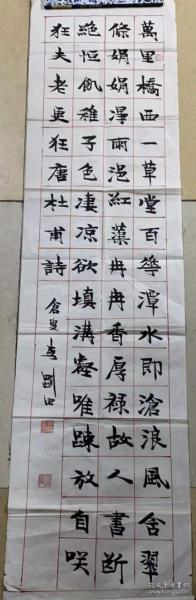 萬里橋西一草堂百華潭水即滄浪風含翠
篠娟娟淨雨浥紅蕖冉冉香厚祿故人書斷
絕恒飢稚子色淒涼欲填溝壑唯踈放自咲
狂夫老更狂唐杜甫詩